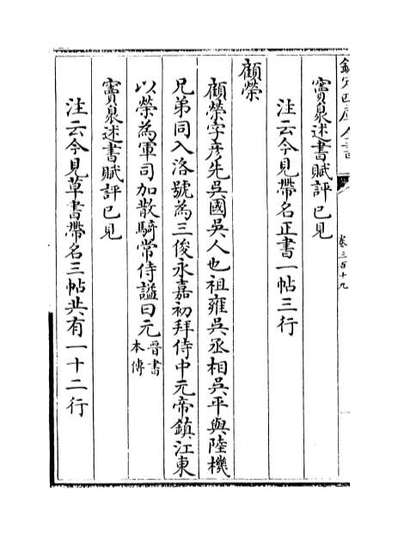 欽定四庫全書
卷三百十九
竇泉述書賦評已見
注云今見帶名正書一帖三行
顧榮
顧榮字彥先吳國吳人也祖雍吳丞相吳平與陸機
兄弟同入洛號為三俊永嘉初拜侍中元帝鎮江東
以榮為軍司加散騎常侍諡曰元晉書本傳
竇泉述書賦評已見
注云今見草書帶名三帖共有一十二行